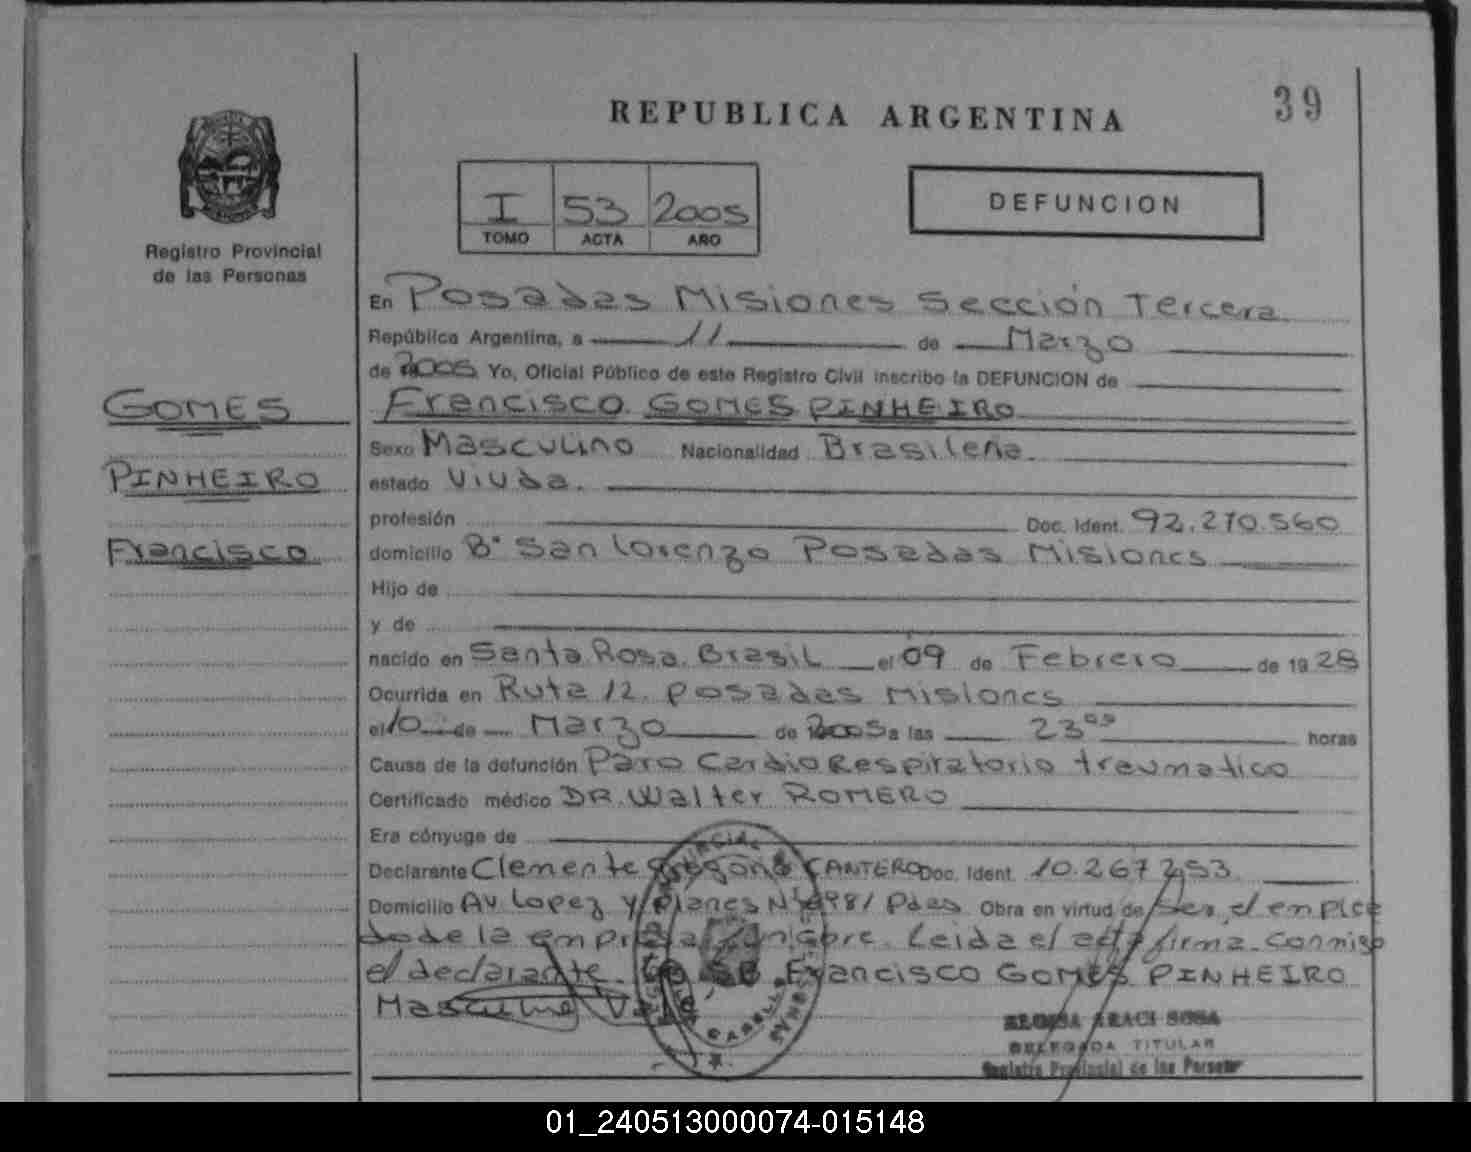 39
REPUBLICA ARGENTINA
I 53 2005
TOMO ACTA AÑO
DEFUNCION
Registro Provincial
de las Personas
GOMES
PINHEIRO
Francisco
En Posadas Misiones Sección Tercera
República Argentina, a 11 de Marzo
de 2005 Yo, Oficial Público de este Registro Civil inscribo la DEFUNCION de
Francisco GOMES PINHEIRO
Sexo Masculino Nacionalidad Brasileña
estado Viuda.
profesión Doc. Ident. 92.270.560
domicilio B° San Lorenzo Posadas Misiones
Hijo de
y de
nacido en Santa Rosa Brasil el 09 de Febrero de 1928
Ocurrida en Ruta 12. Posadas Misiones
el 10 de Marzo de 2005 a las 23 horas
Causa de la defunción Paro Cardio Respiratorio traumatico
Certificado médico DR. Walter ROMERO
Era cónyuge de
Declarante Clemente CANTERO Doc. Ident. 10.267.253
Domicilio Av Lopez y Planes N° 981 Pdas. Obra en virtud de Ser el emplea
do de la empresa Leida el acta firma conmigo
el declarante. Francisco GOMES PINHEIRO
Masculino
ARACI SOSA
DELEGADA TITULAR
Registro Provincial de las Personas
01_240513000074-015148